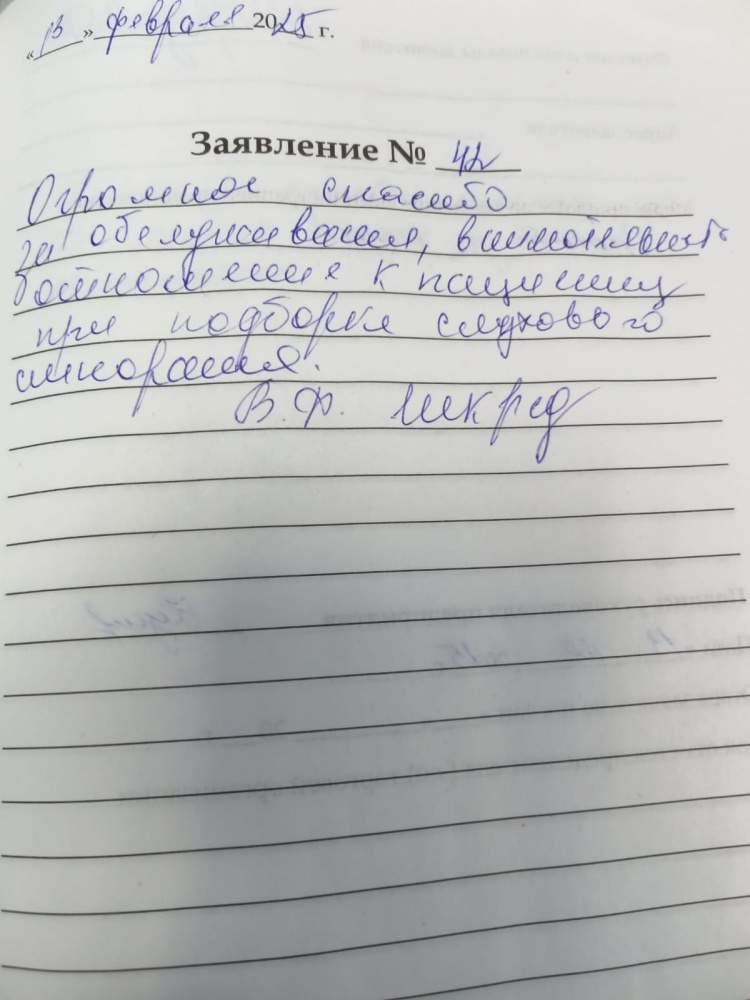 «13» февраля 2025 г.
Заявление № 42
Огромное спасибо
за обслуживания, внимательность
в отношение к пациенту
при подборке слухового
аппарата.
В.Ф.